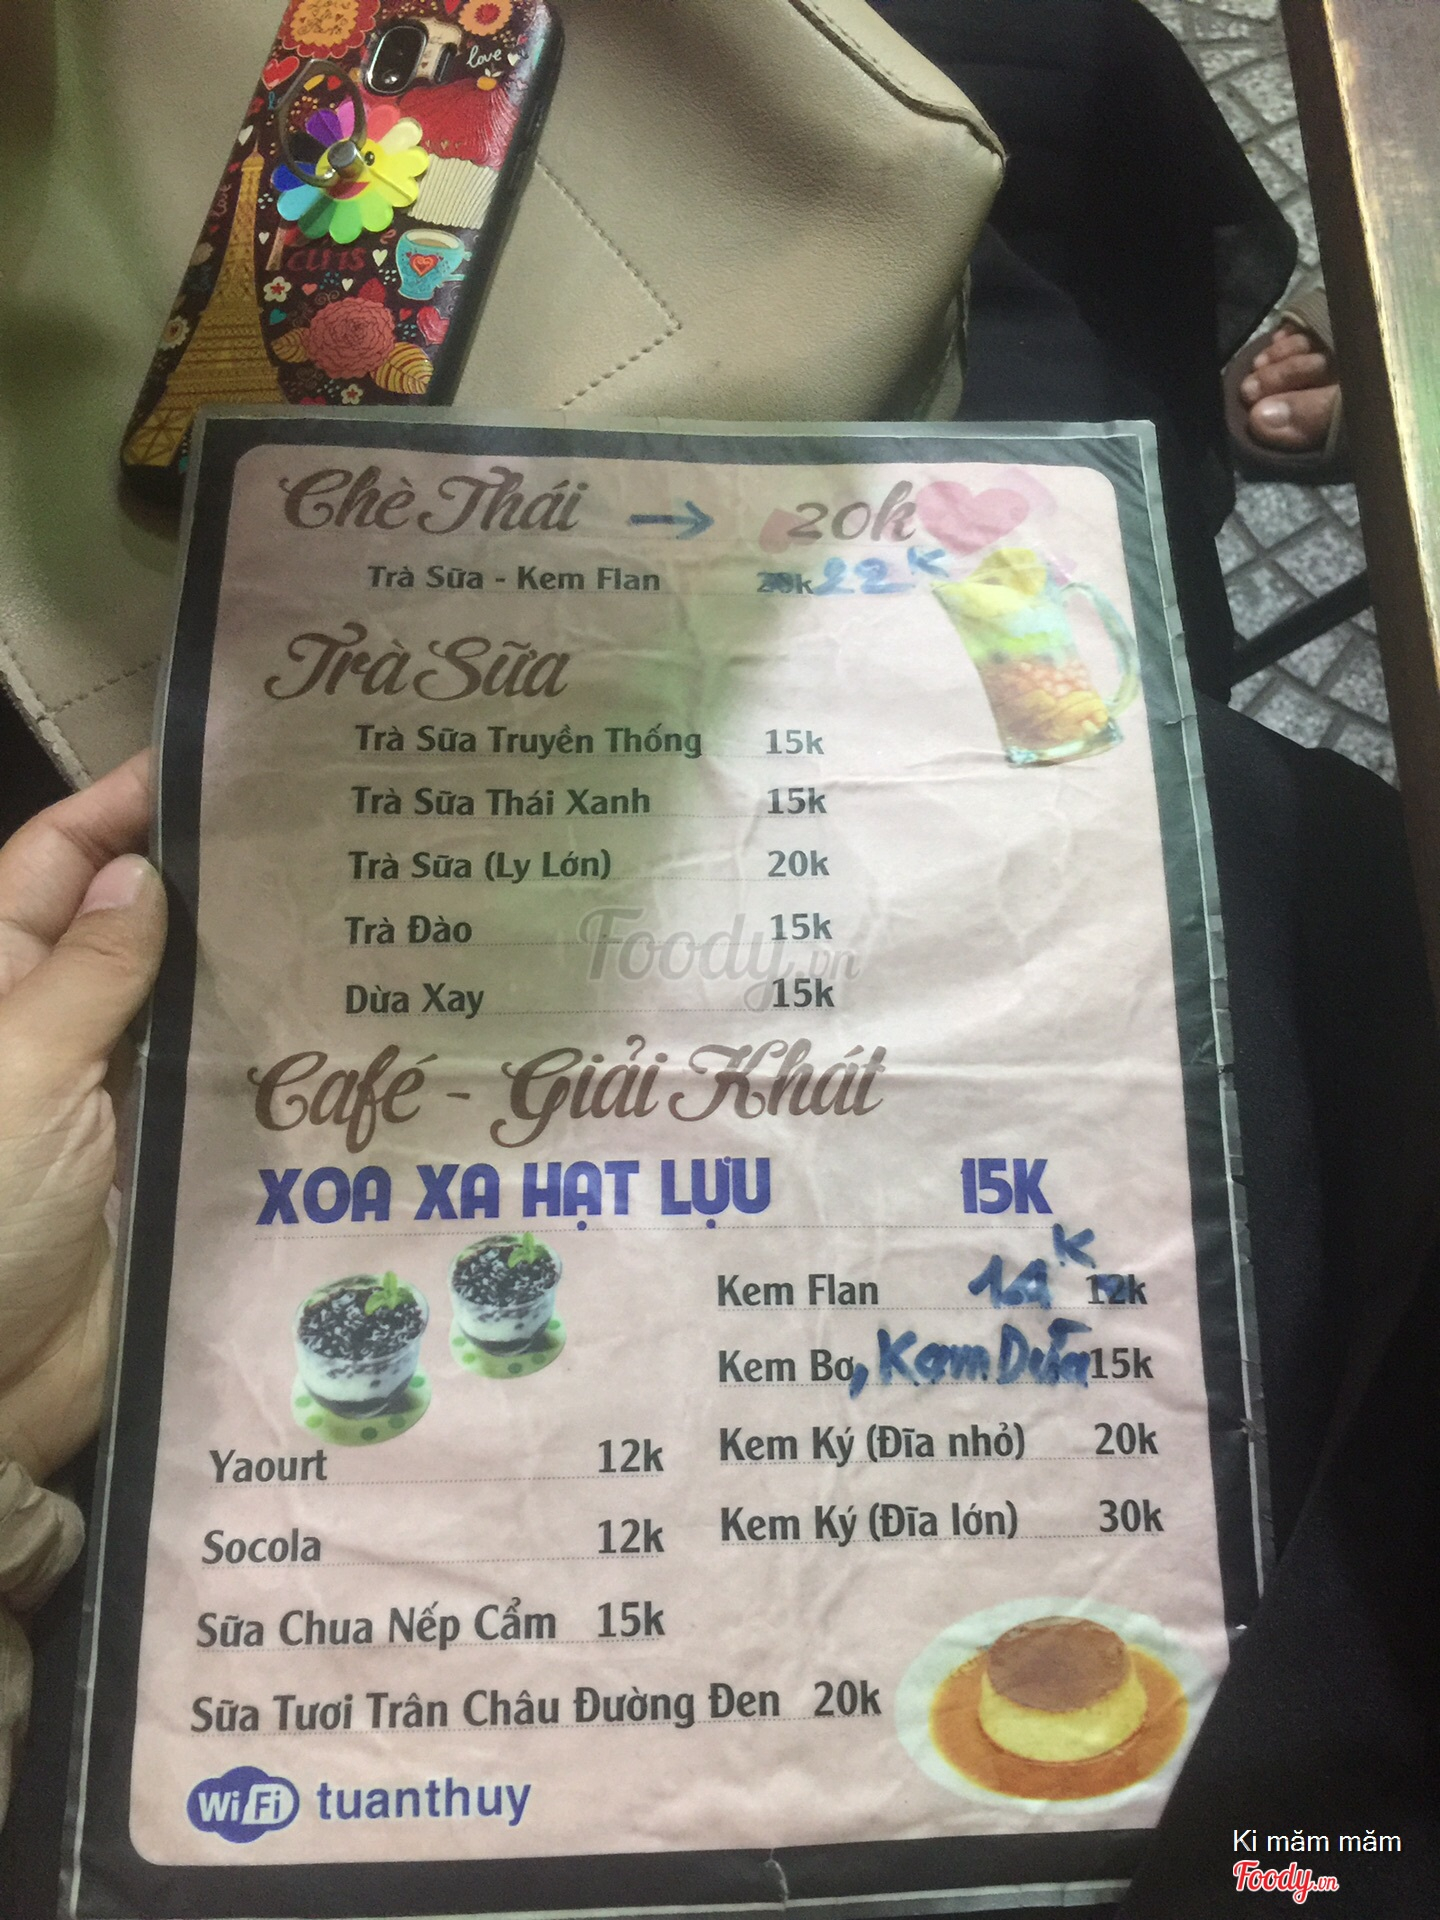 love
Paris
Chè Thái → 20k
Trà Sữa - Kem Flan 22K
Trà Sữa
Trà Sữa Truyền Thống 15k
Trà Sữa Thái Xanh 15k
Trà Sữa (Ly Lớn) 20k
Trà Đào 15k
Foody.vn
Dừa Xay 15k
Café - Giải Khát
XOA XA HẠT LỰU 15K
Kem Flan 12k
Kem Bơ, Kem Dừa 15k
Kem Ký (Đĩa nhỏ) 20k
Kem Ký (Đĩa lớn) 30k
Yaourt 12k
Socola 12k
Sữa Chua Nếp Cẩm 15k
Sữa Tươi Trân Châu Đường Đen 20k
WiFi tuanthuy
Ki măm măm
Foody.vn